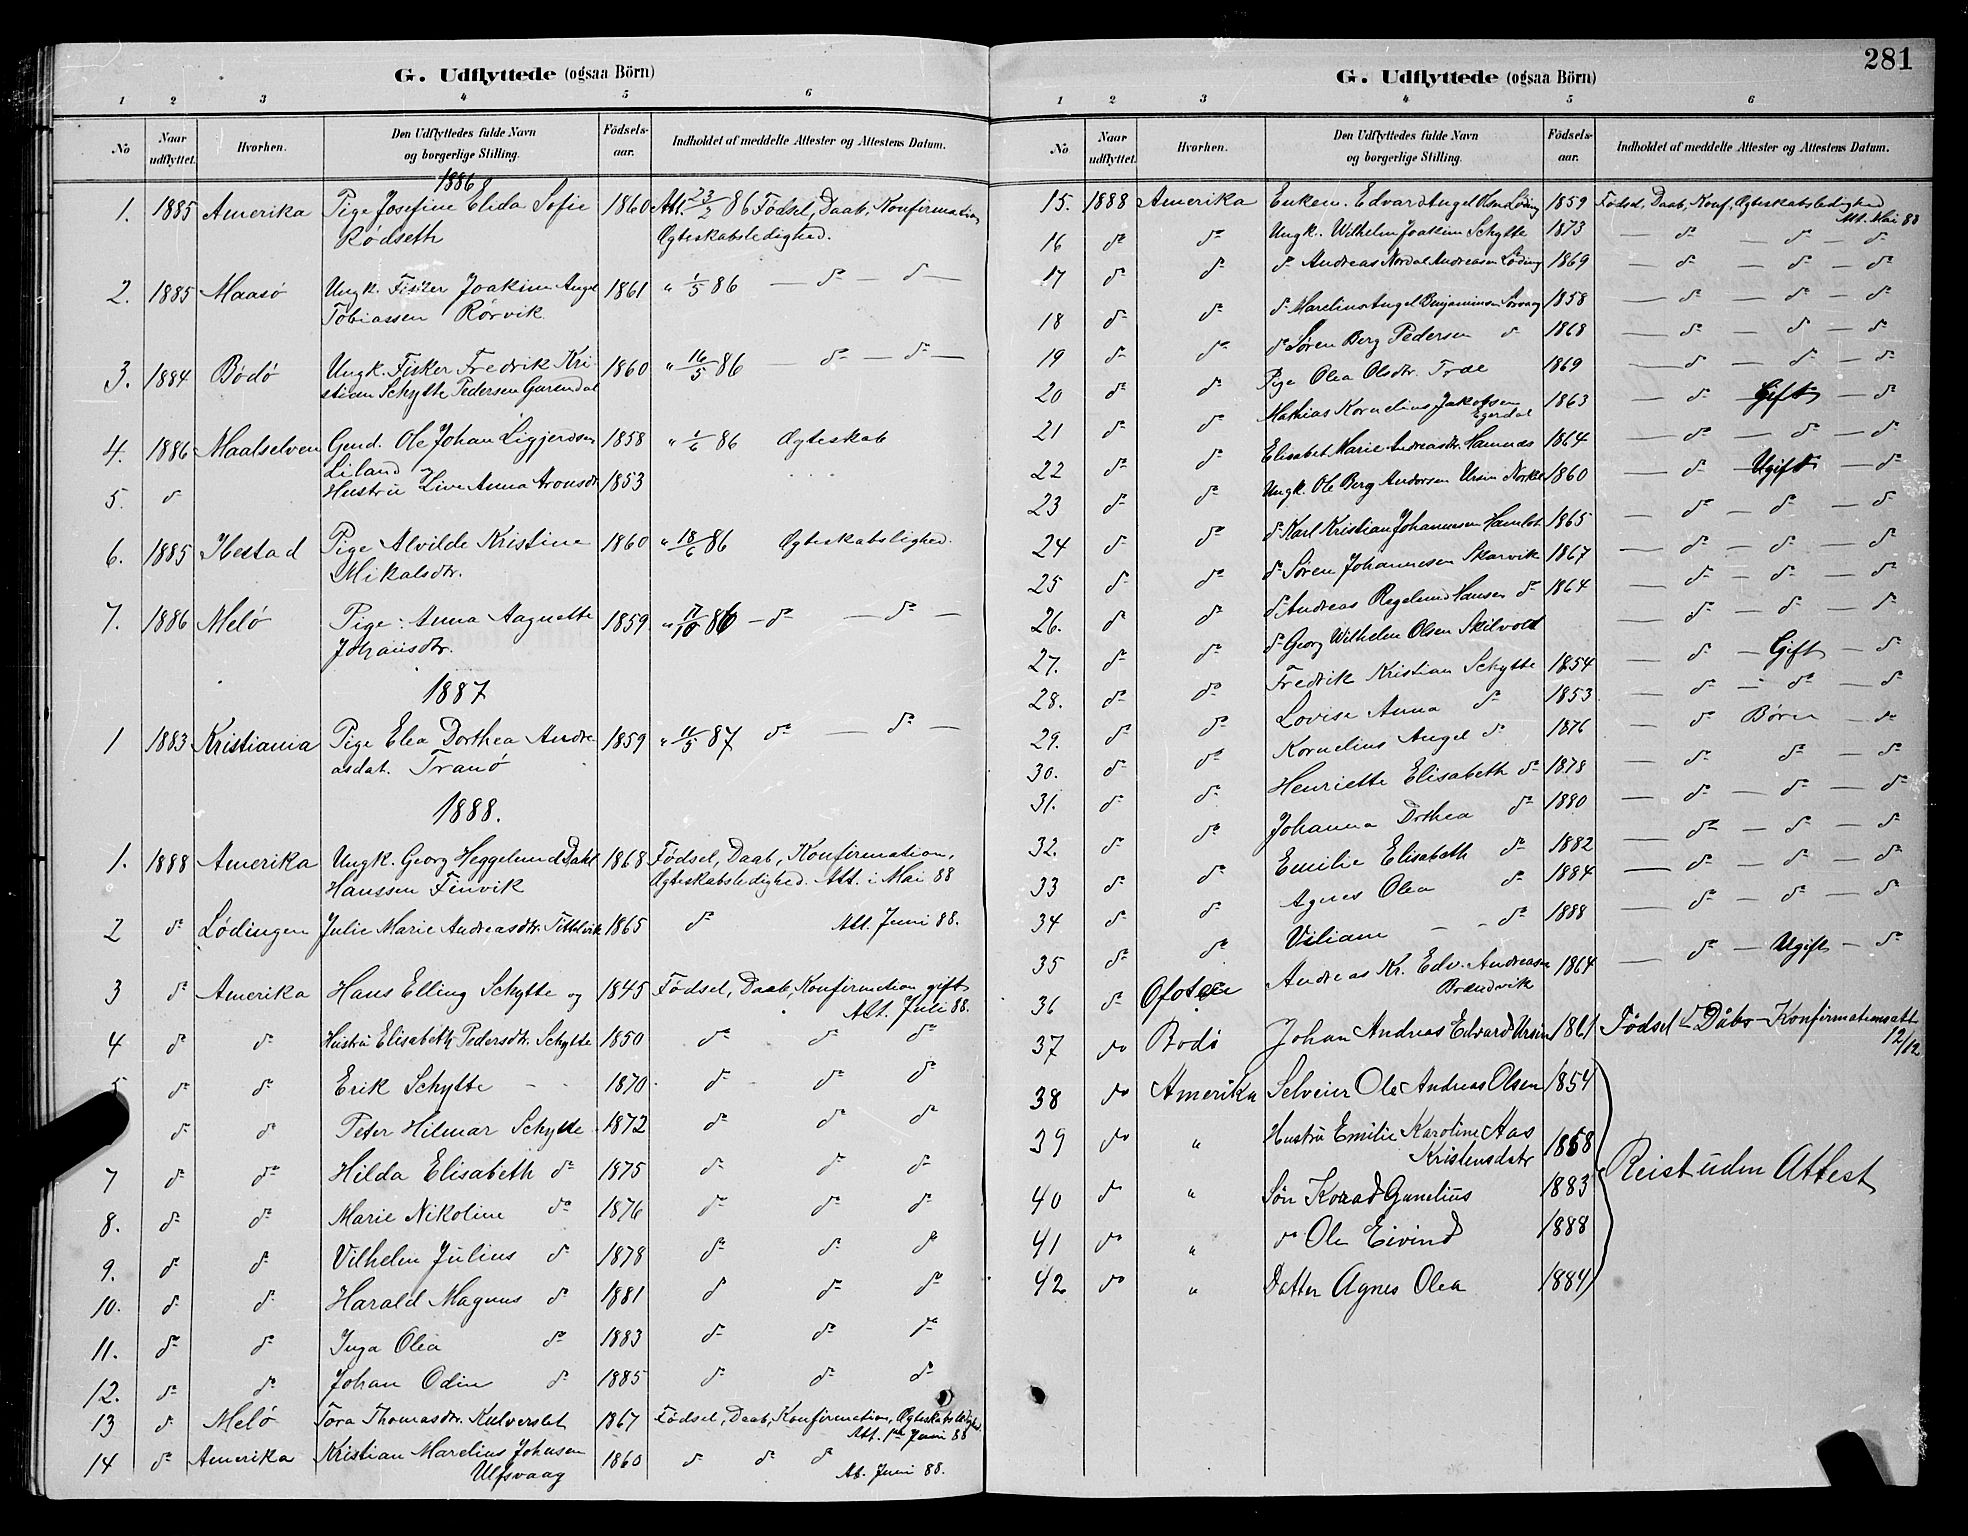 G. Udflyttede (ogsaa Börn)
1 2 3 4 5 6
No Naar udflyttet. Hvorhen. Den Udflyttedes fulde Navn og borgerlige Stilling. Födsels-aar. Indholdet af meddelte Attester og Attestens Datum.
1886
1. 1885 Amerika Pige Josefine Elida Sofie 1860 Att. 23/2 86 Fødsel, Daab, Konfirmation
Rødseth Ægteskabsledighed.
2. 1885 Maasö Ungk. Fisker Joakim Angel 1861 " 1/5 86 — d° — d° —
Tobiassen Rørvik
3. 1884 Bodö Ungk. Fisker Fredrik Kri- 1860 " 16/5 86 — d° — d° —
stian Schytte Pedersen
4. 1886 Maalselven Gmd. Ole Johan 1858 " 1/6 86 Ægteskab
Liland
5. d° Hustru Live Anna Aronsdtr 1853
6. 1885 Ibestad Pige Alvilde Kristine 1860 " 18/6 86 Ægteskabslighed.
Mikalsdtr.
7. 1886 Melö Pige: Anna Aagnette 1859 " 17/10 86 — d° — d° —
Johansdtr.
1887
1 1883 Kristiania Pige Elea Dorthea Andre- 1859 " 11/5 87 d° — d° —
asdat. Tranö
1888.
1. 1888 Amerika Ungk. Georg Heggelund Dahl 1868 Fødsel, Daab, Konfirmation,
Hanssen Finvik Ægteskabsledighed. Att. i Mai 88
2 d° Lödingen Julie Marie Andreasdtr. 1865 d° Att. Juni 88.
3 d° Amerika Hans Elling Schytte og 1845 Fødsel, Daab, Konfirmation gift
Att. Juli 88.
4 d° d° Hustru Elisabeth Pedersdtr. Schytte 1850 d° d° d°
5 d° d° Erik Schytte 1870 d° d° d°
d° d° Peter Hilmar Schytte 1872 d° d° d°
7 d° d° Hilda Elisabeth d° 1875 d° d° d°
8. d° d° Marie Nikoline d° 1876 d° d° d°
9. d° d° Vilhelm Julius d° 1878 d° d° d°
10. d° d° Harald Magnus d° 1881 d° d° d°
11. d° d° Inga Olea d° 1883 d° d° d°
12. d° d° Johan Odin d° 1885 d° d° d°
13 d° Melö Tora Thomasdtr. 1867 Fødsel, Daab, Konfirmation, Ægteskabsledighed.
Att. Juni 88
14 d° Amerika Kristian Marelius Johnsen 1860 d° d° d°
Ulfsvaag At. Juni 88.
281
G. Udflyttede (ogsaa Börn)
1 2 3 4 5 6
No Naar udflyttet. Hvorhen. Den Udflyttedes fulde Navn og borgerlige Stilling. Födsels-aar. Indholdet af meddelte Attester og Attestens Datum.
15. 1888 Amerika Enkem. Edvard Angel 1859 Fødsel, Daab, Konf, Ægteskabsledighed
Att. Mai 88
16 d° d° Ungk. Wilhelm Joakim Schytte 1873 — d° — d° — d°
17 d° d° d° Andreas Nordal Andreasen 1869 — d° — d° — d°
18 d° d° d° Marelius Angel Benjaminsen 1858 — d° — d° — d°
19 d° d° d° Søren Berg Pedersen d° 1868 — d° — d° — d°
20 d° d° Pige Olea Olsdtr. 1869 — d° — d° — d°
21 d° d° Mathias Kornelius Jakobsen 1863 — d° Gift — d°
Egerdal
22 d° d° Elisabet Marie Andreasdtr. Hamnæs 1864 — d° — d° — d°
23 d° d° Ungk. Ole Berg Andorsen Ursin 1860 — d° — Ugift — d°
24 d° d° d° Karl Kristian Johannesen 1865 — d° — d° — d°
25 d° d° d° Søren Johannesen Skarvik 1867 — d° — d° — d°
26. d° d° d° Andreas Hansen d° 1864 — d° — d° — d°
27. d° d° d° Georg Wilhelm Olsen Skilvold — d° — d° — d°
28. d° d° Fredrik Kristian Schytte 1854 — d° — Gift — d°
29. d° d° Lovise Anna d° 1853 — d° — d° — d°
30. d° d° Kornelius Angel d° 1876 — d° Børn — d°
31. d° d° Henriette Elisabeth d° 1878 — d° d° — d°
32. d° d° Johanna Drthea d° 1880 — d° — d° — d°
33 d° d° Emilie Elisabeth d° 1882 — d° — d° — d°
34 d° d° Agnes Olea d° 1884 — d° — d° — d°
35 d° d° Viliam d° 1888 — d° — d° — d°
36 d° Ofoten Andreas Kr. Edv. Andreasen 1864 — d° — Ugift — d°
Brændvik
37 do Bodö Johan Andreas Edvard Ursin 1861 Fødsel & Dåbs-Konfirmationsatt
12/12
38 do Amerika Selveier Ole Andreas Olsen 1854
39 do " Hustru Emilie Karoline Aas 1858
Kristensdatr
Reist uden Attest
40 do " Søn Konrad Gunelius 1883
41 do " do Ole Eivind 1888
42 do " Datter Agnes Olea 1884